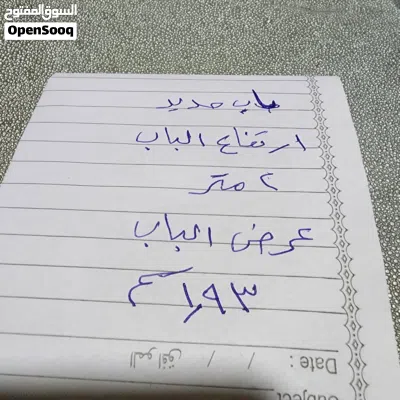 السوق المفتوح
OpenSooq
باب حديد
ارتفاع الباب
٢ متر
عرض الباب
١,٩٣ سم
Date : / / الموافق
Subject